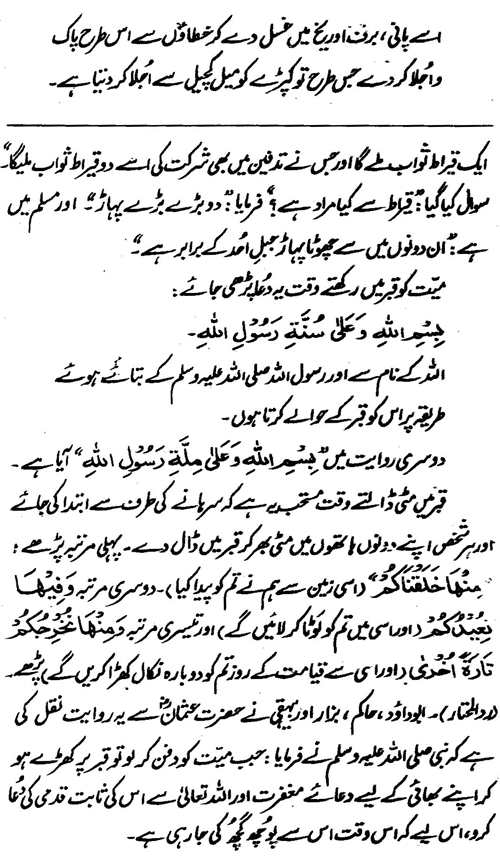 اسے پانی، برف اور یخ میں غسل دے کر خطاؤں سے اس طرح پاک
و اجلا کر دے جس طرح تو کپڑے کو میل کچیل سے اُجلا کر دیتا ہے۔
ایک قیراط ثواب ملے گا اور جس نے تدفین میں بھی شرکت کی اسے دو قیراط ثواب ملیگا۔"
سوال کیا گیا: "قیراط سے کیا مراد ہے؟" فرمایا: "دو بڑے بڑے پہاڑ"۔ اور مسلم میں
ہے: "ان دونوں میں سے چھوٹا پہاڑ جبلِ اُحد کے برابر ہے۔"
میّت کو قبر میں رکھتے وقت یہ دُعا پڑھی جائے:
بِسْمِ اللهِ وَعَلىٰ سُنَّةِ رَسُوْلِ اللهِ۔
اللہ کے نام سے اور رسول اللہ صلی اللہ علیہ وسلم کے بتائے ہوئے
طریقہ پر اس کو قبر کے حوالے کرتا ہوں۔
دوسری روایت میں "بِسْمِ اللهِ وَعَلىٰ مِلَّةِ رَسُوْلِ اللهِ" آیا ہے۔
قبر میں مٹی ڈالتے وقت مستحب یہ ہے کہ سرہانے کی طرف سے ابتدا کی جائے
اور ہر شخص اپنے دونوں ہاتھوں میں مٹی بھر کر قبر میں ڈال دے۔ پہلی مرتبہ پڑھے:
مِنْهَا خَلَقْنَاكُمْ" (اسی زمین سے ہم نے تم کو پیدا کیا)۔ دوسری مرتبہ وَفِيْهَا
نُعِيْدُكُمْ (اور اسی میں تم کو لوٹا کر لائیں گے) اور تیسری مرتبہ وَمِنْهَا نُخْرِجُكُمْ
تَارَةً اُخْرٰى (اور اسی سے قیامت کے روز تم کو دوبارہ نکال کھڑا کریں گے) پڑھے۔
(ردالمختار)۔ ابوداؤد، حاکم، بزار اور بیہقی نے حضرت عثمانؓ سے یہ روایت نقل کی
ہے کہ نبی صلی اللہ علیہ وسلم نے فرمایا: جب میّت کو دفن کر لو تو قبر پر کھڑے ہو
کر اپنے بھائی کے لیے دعائے مغفرت اور اللہ تعالیٰ سے اس کی ثابت قدمی کی دُعا
کرو، اس لیے کہ اس وقت اس سے پوچھ گچھ کی جا رہی ہے۔